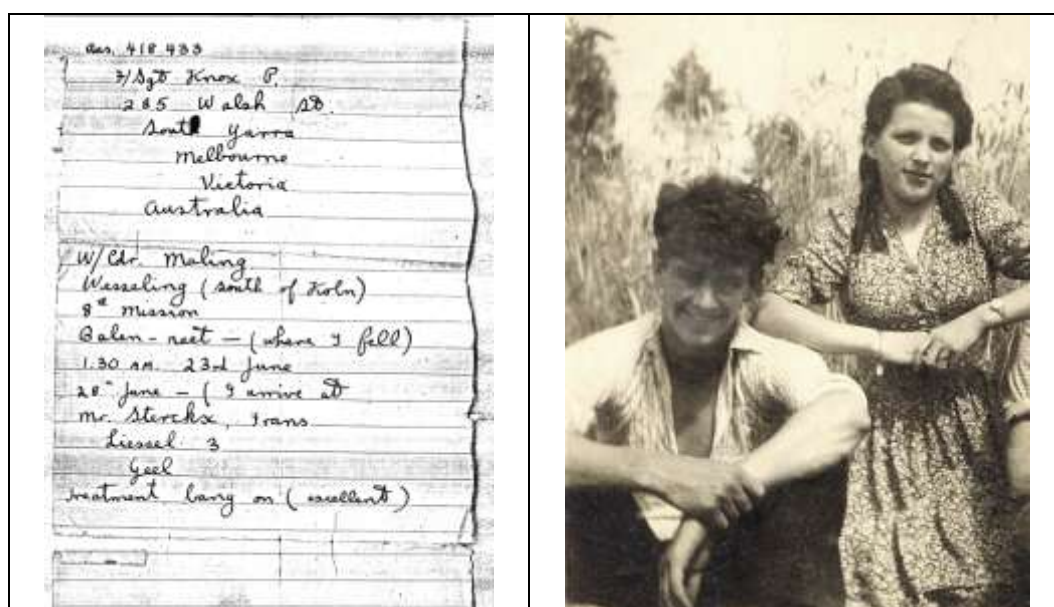 Aus. 418 433
F/Sgt Knox P.
285 Walsh St.
South Yarra
Melbourne
Victoria
Australia
W/Cdr. Maling
Wesseling (south of Koln)
8th mission
Balen-neet — (where I fell)
1.30 am. 23rd June
28th June — (I arrive at
Mr. Sterckx, Frans
Liessel 3
Geel
Treatment bang on (excellent)